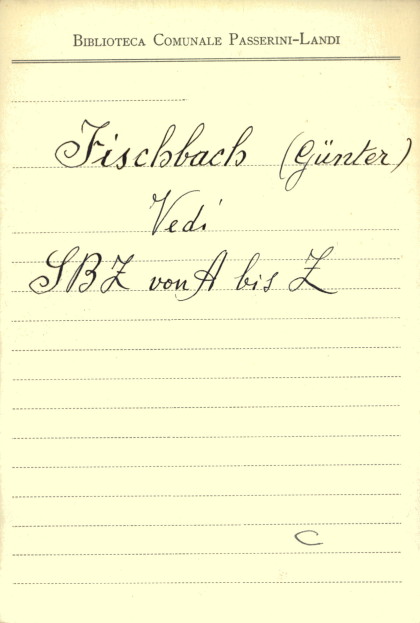 Biblioteca Comunale Passerini-Landi
Fischbach (Günter)
Vedi
SBZ von A bis Z
C